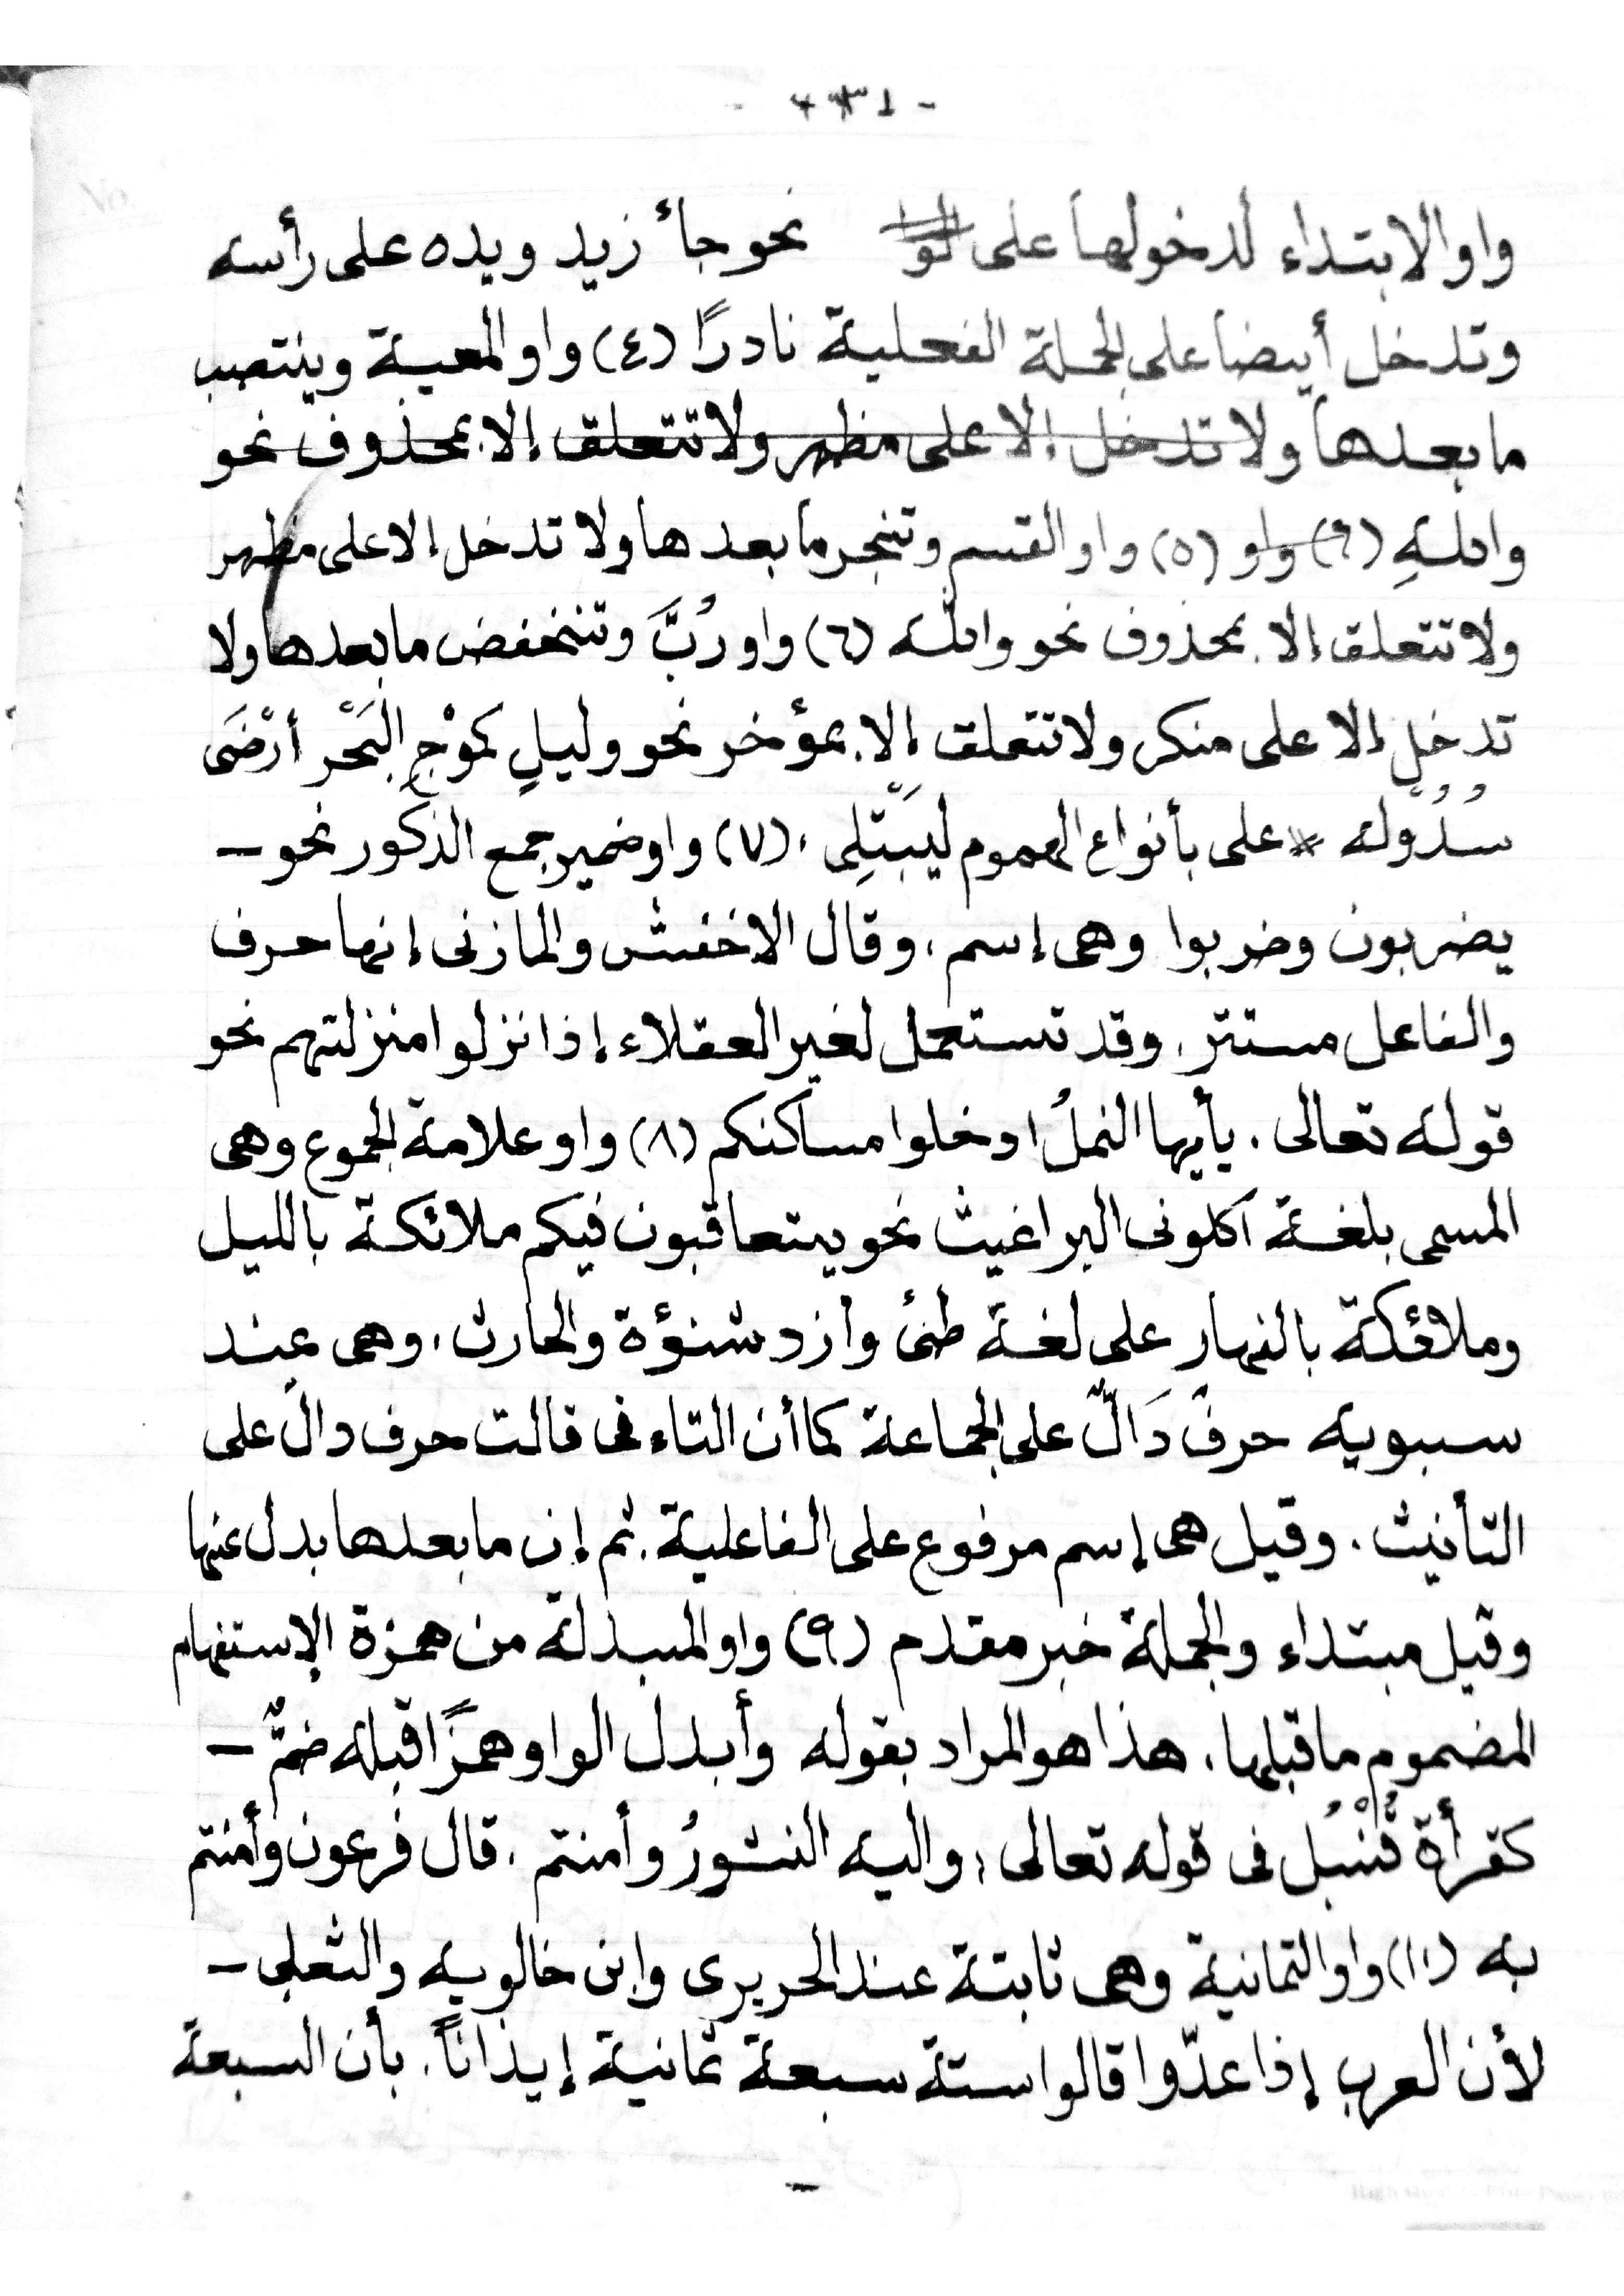 واو الابتداء لدخولها على نحو جاء زيد ويده على رأسه
وتدخل أيضا على الجملة الفعلية نادرًا (٤) واو المعية وينتصب
ما بعدها ولا تدخل إلا على مظهر ولا تتعلق إلا بمحذوف نحو
واللهِ (٦) واو (٥) واو القسم وتنجر ما بعدها ولا تدخل إلا على مظهر
ولا تتعلق إلا بمحذوف نحو والله (٦) واو رُبَّ وتنخفض ما بعدها ولا
تدخل إلا على منكر ولا تتعلق إلا بمؤخر نحو وليلٍ كموْجِ البَحْر أرْضَى
سُدُوْلَه * على بأنواع الهموم ليَبْتَلِى ، (٧) واو ضمير جمع الذكور نحو –
يضربون وضربوا وهى إسم ، وقال الاخفش والمازنى إنها حرف
والفاعل مستتر . وقد تستعمل لغير العقلاء إذا نزلوا منزلتهم نحو
قوله تعالى . يأيها النملُ ادخلوا مساكنكم (٨) واو علامة الجموع وهى
المسمى بلغة اكلونى البراغيث نحو يتعاقبون فيكم ملائكة بالليل
وملائكة بالنهار على لغة طئ وازد شنؤة والحارث ، وهى عند
سبويه حرفٌ دَالٌّ على الجماعة كما أن التاء فى قالت حرف دالّ على
التأنيث . وقيل هى إسم مرفوع على الفاعلية . ثم إن ما بعدها بدل عنها
وقيل مبتداء والجملة خبر مقدم (٩) واو المبدلة من همزة الإستفهام
المضموم ما قبلها ، هذا هو المراد بقوله وأبدل الواو همزًا قبله ضمٌّ –
كقرأة قُنْبُل فى قوله تعالى ؛ واليه النشورُ وأمنتم . قال فرعون وأمنتم
به (١٠) واو الثمانية وهى ثابتة عند الحريرى وابن خالويه والثعلبى –
لأن العرب إذا عدّوا قالوا ستة سبعة ثمانية إيذاناً . بأن السبعة